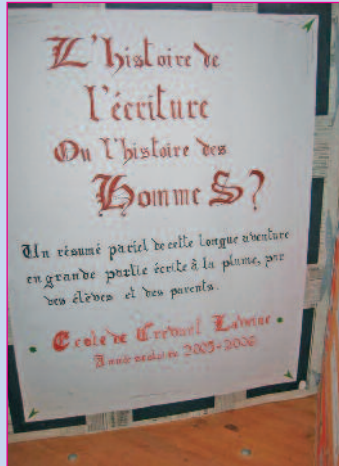 L'histoire de
l'écriture
Ou l'histoire des
Homme S?
Un résumé pariel de cette longue aventure
en grande partie écrite à la plume, par
des élèves et des parents.
Ecole de Crevant Laveine
Année scolaire 2005-2006